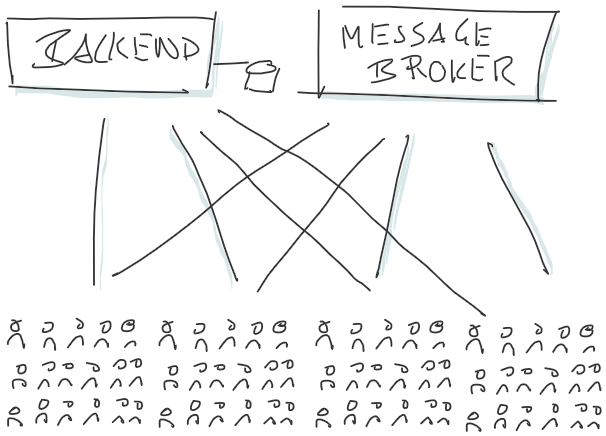 BACKEND
MESSAGE
BROKER